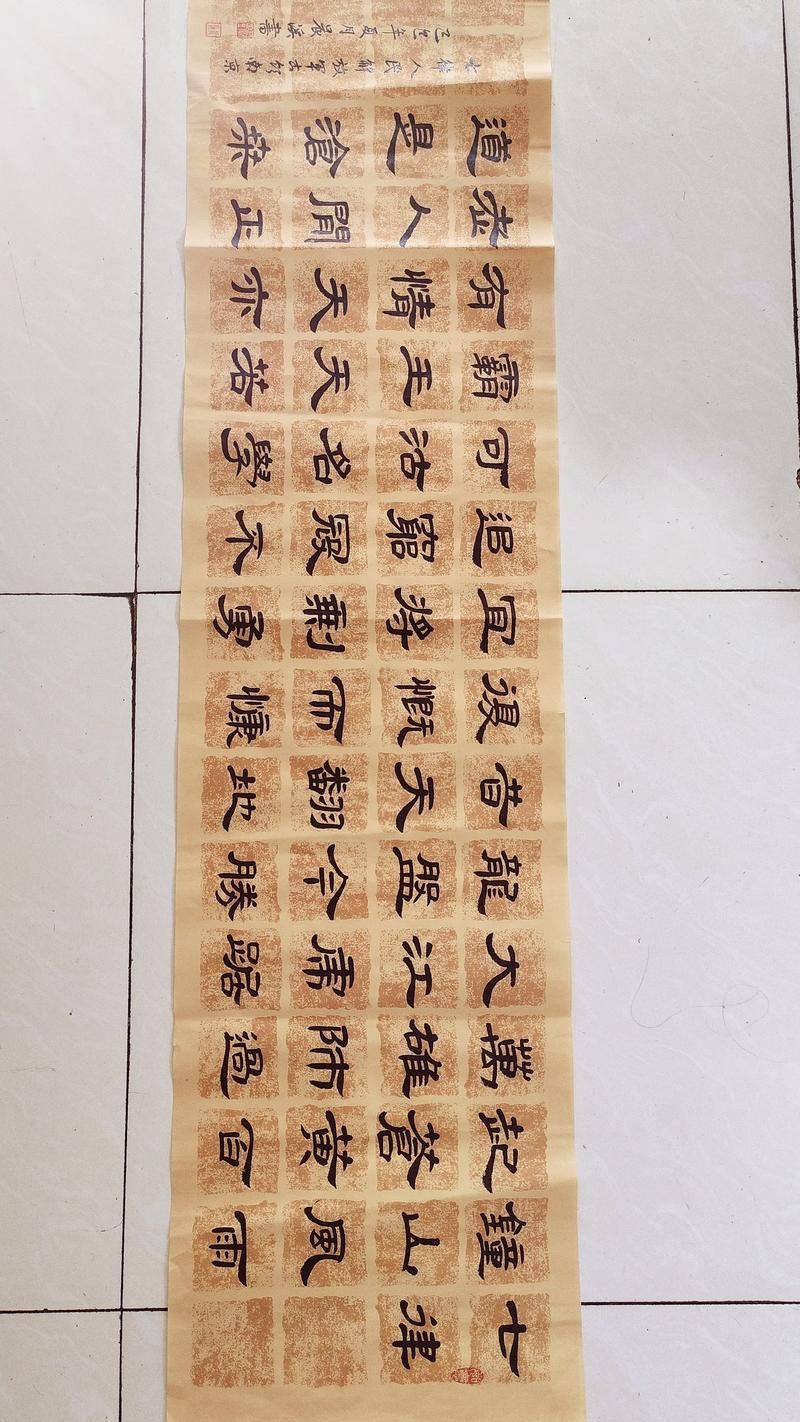 七律
鐘山風雨
起蒼黃百
萬雄師過
大江虎踞
龍盤今勝
昔天翻地
覆慨而慷
宜將剩勇
追窮寇不
可沽名學
霸王天若
有情天亦
老人間正
道是滄桑
人民解放軍占領南京
巳年夏月書